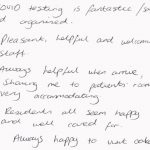 COVID testing is fantastic/
d organised.
Pleasant, helpful and welcom
staff.
Always helpful when arrive,
showing me to patients room
very accommodating
Residents all seem happy
and well cared for.
Always happy to visit